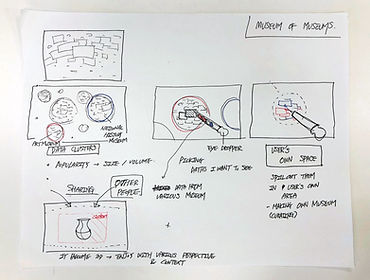 MUSEUM OF MUSEUMS.
NATIONAL
MUSEUM
ART MUSEUM
DATA CLUSTERS
POPULARITY → SIZE / VOLUME.
EYE DROPPER
PICKING
DATAS I WANT TO SEE
DATA FROM
VARIOUS MUSEUM
USER'S
OWN SPACE
SPILL OUT THEM
IN USER'S OWN
AREA
- MAKING OWN MUSEUM
SHARING
OTHER
PEOPLE
IT BECOME 3D → WITH VARIOUS PERSPECTIVE
& CONTEXT